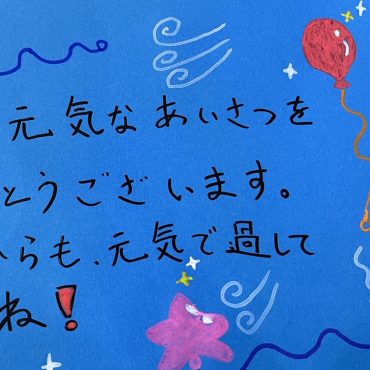 元気なあいさつを
とうございます。
らも、元気で過して
ね!